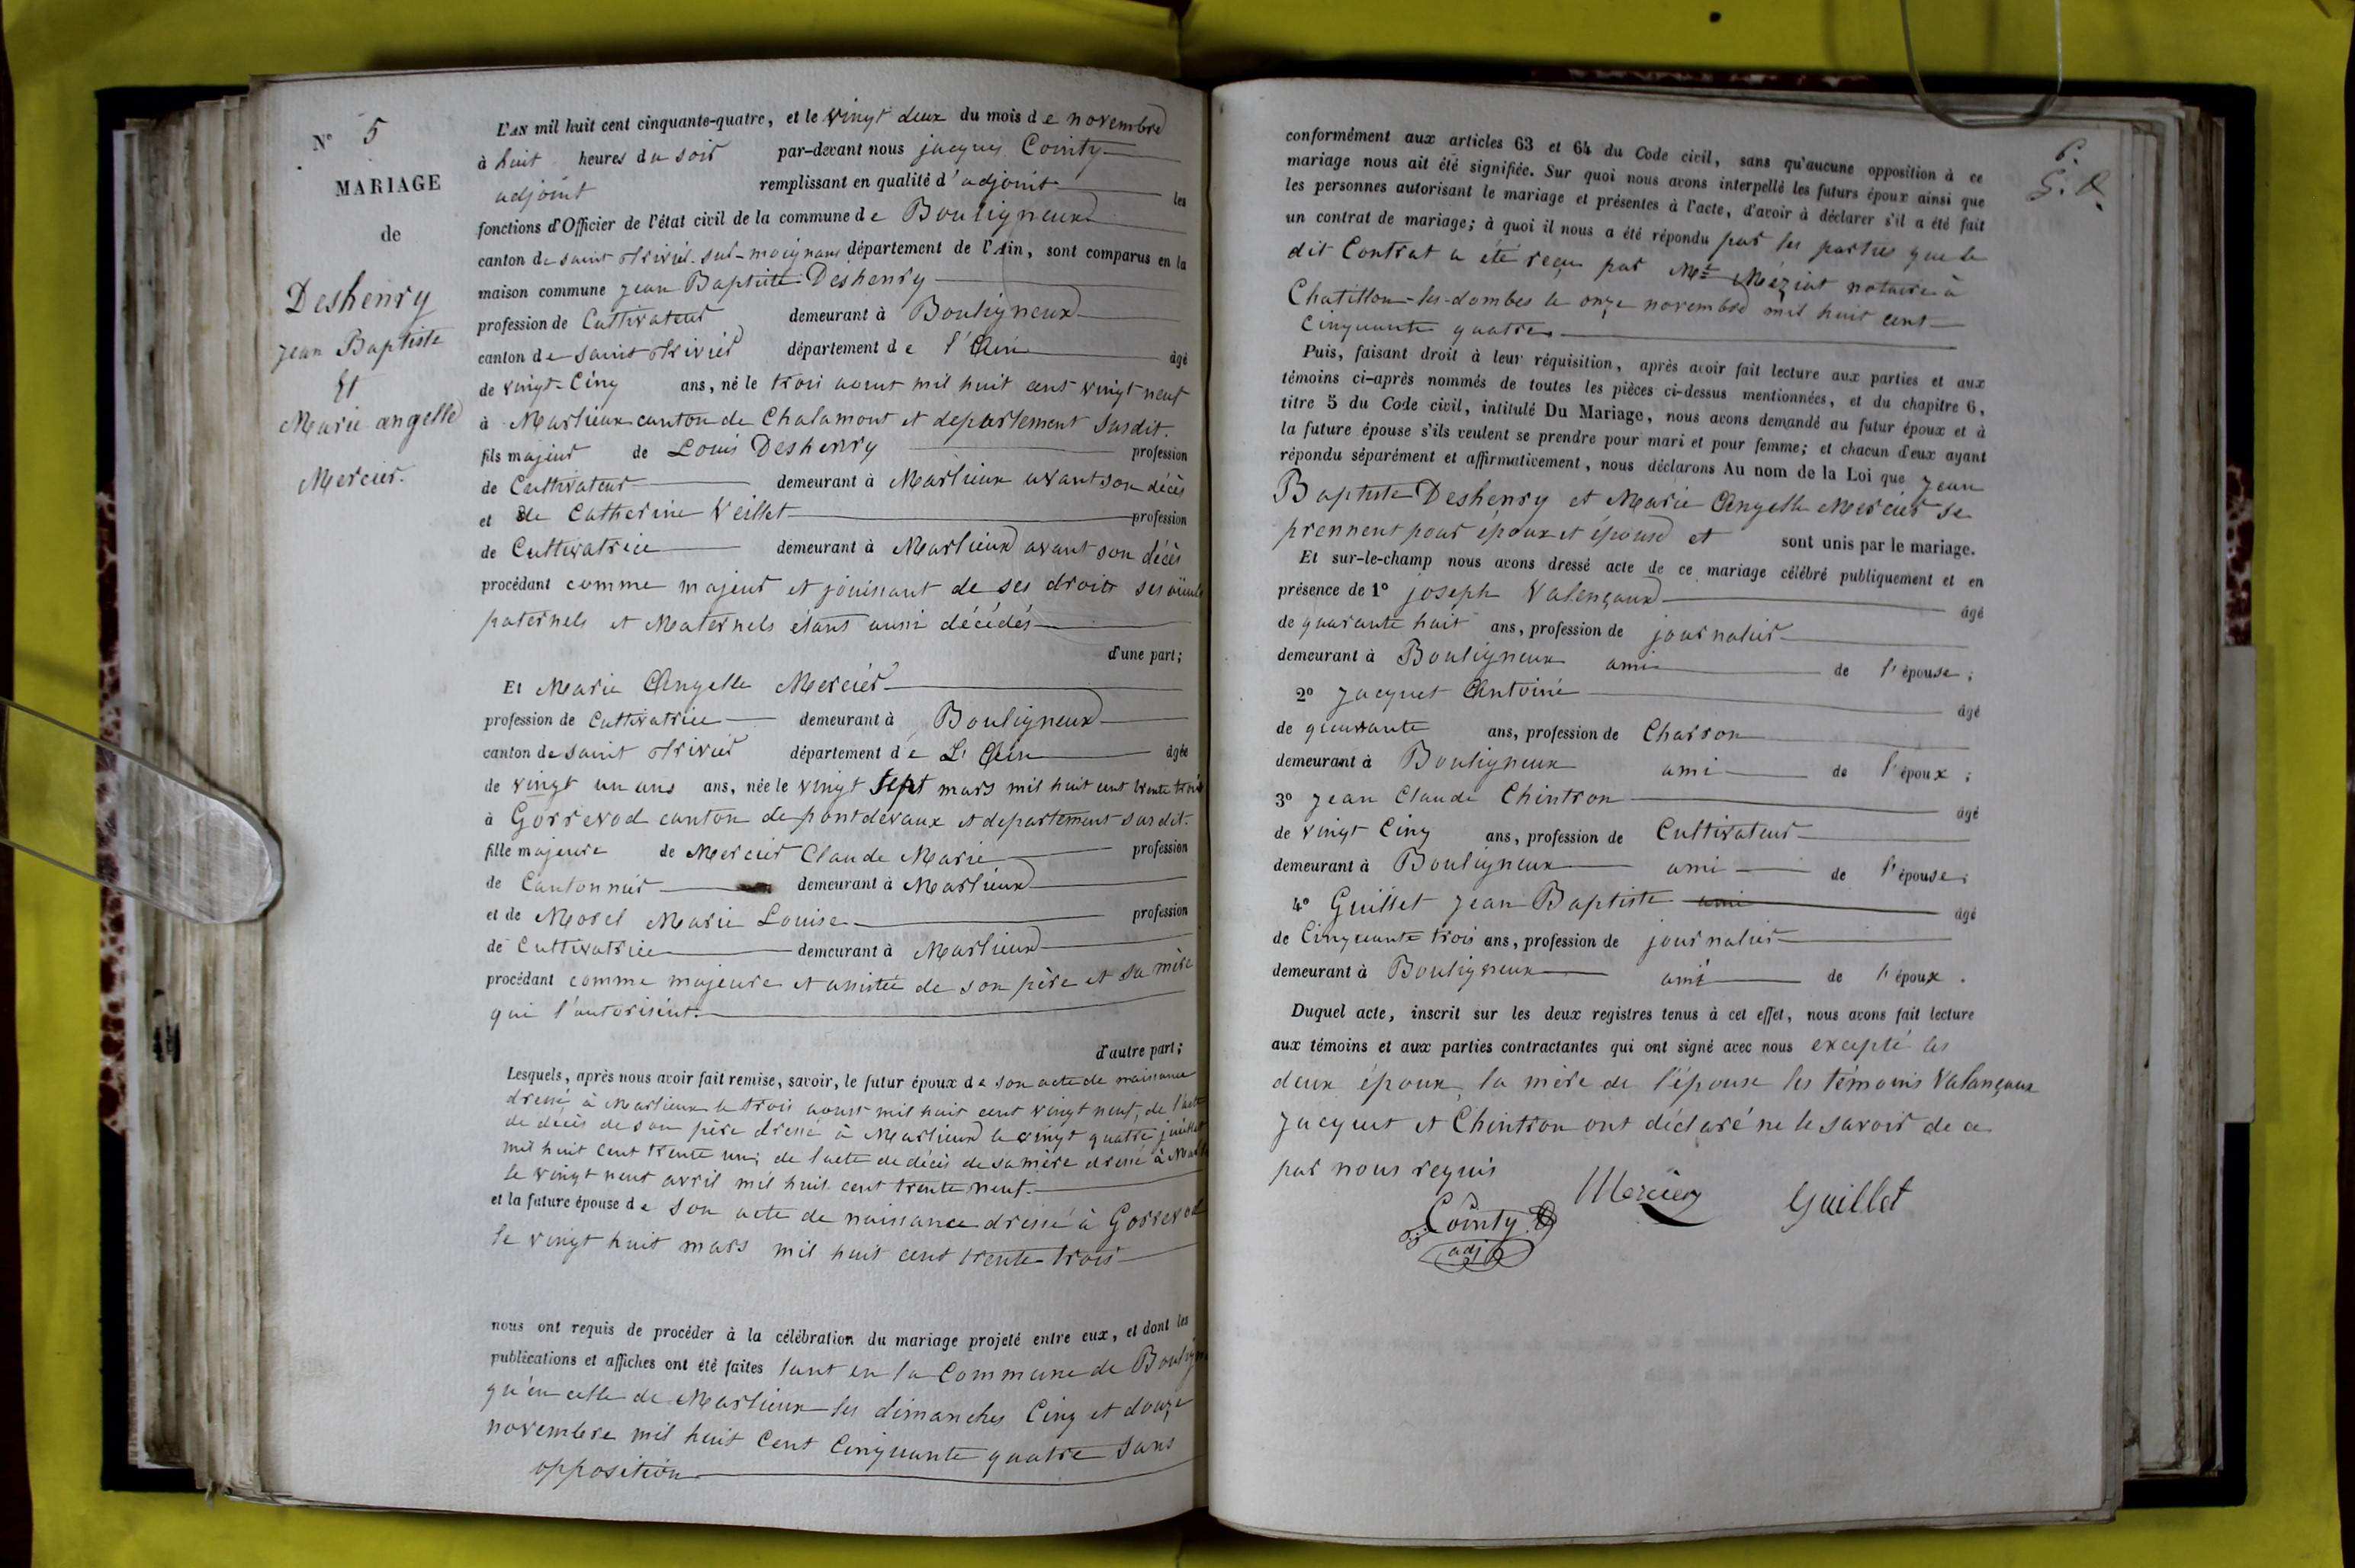 N° 5
MARIAGE
de
Deshenry
Jean Baptiste
Et
Marie angelle
Mercier.
L'AN mil huit cent cinquante-quatre, et le vingt deux du mois de novembre
à huit heures du soir par-devant nous jacques Cointy
adjoint remplissant en qualité d'adjoint les
fonctions d'Officier de l'état civil de la commune de Bouligneux
canton de saint trivier-sur-moignans département de l'Ain, sont comparus en la
maison commune jean Baptiste Deshenry
profession de Cultivateur demeurant à Bouligneux
canton de saint trivier département de l'Ain âgé
de vingt-Cinq ans, né le trois aout mil huit cent vingt neuf
à Marlieux canton de Chalamont et departement susdit.
fils majeur de Louis Deshenry profession
de Cultivateur demeurant à Marlieux avant son décès
et de Catherine Veillet profession
de Cultivatrice demeurant à Marlieux avant son décès
procédant comme majeur et jouissant de ses droits ses aïeuls
paternels et Maternels étant aussi décédés
d'une part;
Et Marie Angelle Mercier
profession de Cultivatrice demeurant à Bouligneux
canton de saint trivier département de L'Ain âgée
de vingt un ans ans, née le vingt sept mars mil huit cent trente trois
à Gorrevod canton de pontdevaux et departement susdit.
fille majeure de Mercier Claude Marie profession
de Cantonnier demeurant à Marlieux
et de Morel Marie Louise profession
de Cultivatrice demeurant à Marlieux
procédant comme majeure et assistée de son père et sa mère
qui l'autorisent.
d'autre part;
Lesquels, après nous avoir fait remise, savoir, le futur époux de son acte de naissance
dressé à Marlieux le trois aoust mil huit cent vingt neuf, de l'acte
de décès de son père dressé à Marlieux le vingt quatre juillet
mil huit cent trente un; de l'acte de décès de sa mère dressé à
le vingt neuf avril mil huit cent trente neuf.
et la future épouse de son acte de naissance dressé à Gorrevod
le vingt huit mars mil huit cent trente trois
nous ont requis de procéder à la célébration du mariage projeté entre eux, et dont les
publications et affiches ont été faites tant en la Commune de
qu'en celle de Marlieux les dimanches Cinq et douze
novembre mil huit Cent Cinquante quatre sans
opposition
6.
conformément aux articles 63 et 64 du Code civil, sans qu'aucune opposition à ce
mariage nous ait été signifiée. Sur quoi nous avons interpellé les futurs époux ainsi que
les personnes autorisant le mariage et présentes à l'acte, d'avoir à déclarer s'il a été fait
un contrat de mariage; à quoi il nous a été répondu par les parties que le
dit Contrat a été reçu par Mt Méziat notaire à
Chatillon-les-dombes le onze novembre mil huit cent
Cinquante quatre
Puis, faisant droit à leur réquisition, après avoir fait lecture aux parties et aux
témoins ci-après nommés de toutes les pièces ci-dessus mentionnées, et du chapitre 6,
titre 5 du Code civil, intitulé Du Mariage, nous avons demandé au futur époux et à
la future épouse s'ils veulent se prendre pour mari et pour femme; et chacun d'eux ayant
répondu séparément et affirmativement, nous déclarons Au nom de la Loi que jean
Baptiste Deshenry et Marie Angelle Mercier se
prennent pour époux et épouse et sont unis par le mariage.
Et sur-le-champ nous avons dressé acte de ce mariage célébré publiquement et en
présence de 1° joseph Valençaux âgé
de quarante huit ans, profession de journalier
demeurant à Bouligneux ami de l'épouse;
2° jacquet Antoine âgé
de quarante ans, profession de Charron
demeurant à Bouligneux ami de l'époux;
3° jean Claude Chintron âgé
de vingt Cinq ans, profession de Cultivateur
demeurant à Bouligneux ami de l'épouse;
4° Guillet jean Baptiste ami âgé
de Cinquante trois ans, profession de journalier
demeurant à Bouligneux ami de l'époux.
Duquel acte, inscrit sur les deux registres tenus à cet effet, nous avons fait lecture
aux témoins et aux parties contractantes qui ont signé avec nous excepté les
deux époux, la mère de l'épouse les témoins Valançaux
jacquet et Chintron ont déclaré ne le savoir de ce
par nous requis
Mercier Guillet
Cointy
adj